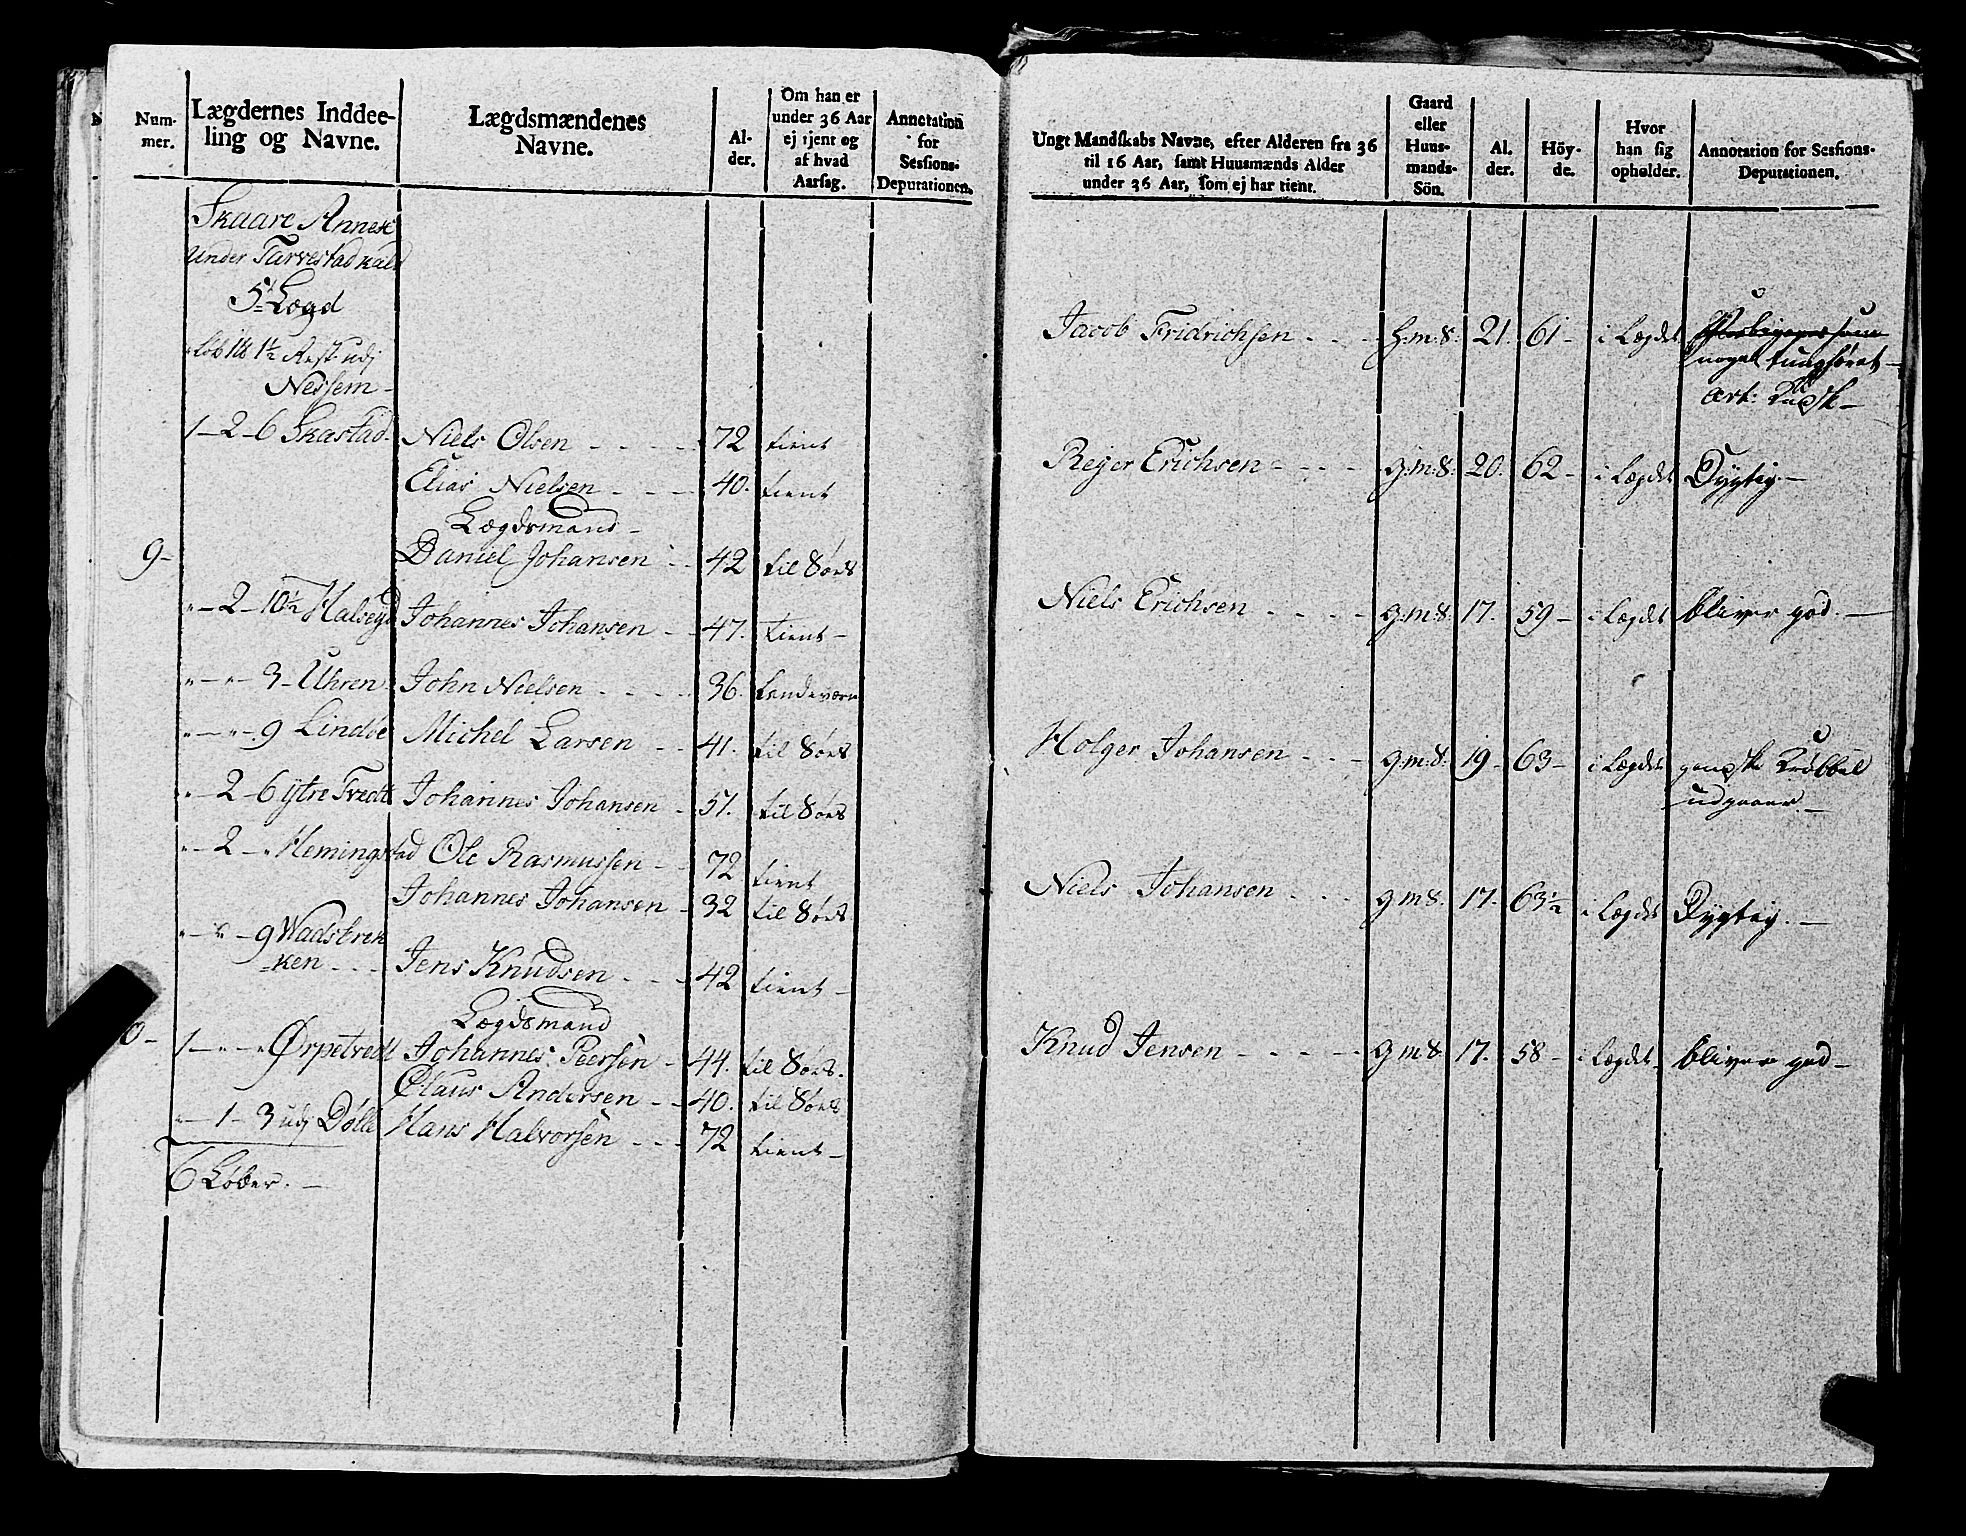 Num-
mer.
Lægdernes Inddee-
ling og Navne.
Lægdsmændenes
Navne.
Al-
der.
Om han er
under 36 Aar
ej tjent og
af hvad
Aarsag.
Annotation
for
Sessions-
Deputationen.
Skaare Annex
under Tarvestad kald
5te Lægd
Løb 1/2 Aast udj
Nessem-
1-2-6 Skastad- Niels Olsen - - - 72 tient
Elias Nielsen - - - 40. tient
Lægdsmand-
9- Daniel Johansen - 42 til Søes
"-2-10½ Halseyd Johannes Johansen - 47. tient-
"-"-3-Uhren John Nielsen - - - 36. Landeværn
"-"-9 Lindøe Michel Larsen - - 41. til Søes
"-2-6 ytre Tvedt Johannes Johansen - 51. til Søes
"-2-" Hemingstad Ole Rasmussen - 72 tient
Johannes Johansen - 32 til Søes
"-"-9 Wadsbrek
=ken - - - Jens Knudsen - - - 42 tient-
Lægdsmand
0- 1-"-" Ørpetvedt Johannes Peersen - 44. til Søes.
Olaus Andersen - - 40. til Søes
"-1-3 udj Dølle Hans Halvorsen - - - 72 tient-
6 Løber. -
Ungt Mandskabs Navne, efter Alderen fra 36
til 16 Aar, samt Huusmænds Alder
under 36 Aar, som ej har tient.
Gaard
eller
Huus-
mands-
Sön.
Al-
der.
Höy-
de.
Hvor
han sig
opholder.
Annotation for Sessions-
Deputationen.
Jacob Fridrichsen - - - h:m:s: 21. 61- i Lægdet
noget tunghøret-
Art: Kudsk-
Rejer Erichsen - - - g:m:s. 20. 62- i Lægdet Dygtig.-
Niels Erichsen - - - g:m:s 17. 59- i Lægdet bliver god.-
Holger Johansen - - - g:m:s. 19- 63- i Lægdet ganske Krøbbel
udgaaer-
Niels Johansen - - - g m s. 17. 63½ i Lægdet Dygtig.-
Knud Jensen - - - g m s. 17. 58- i Lægdet. bliver god-